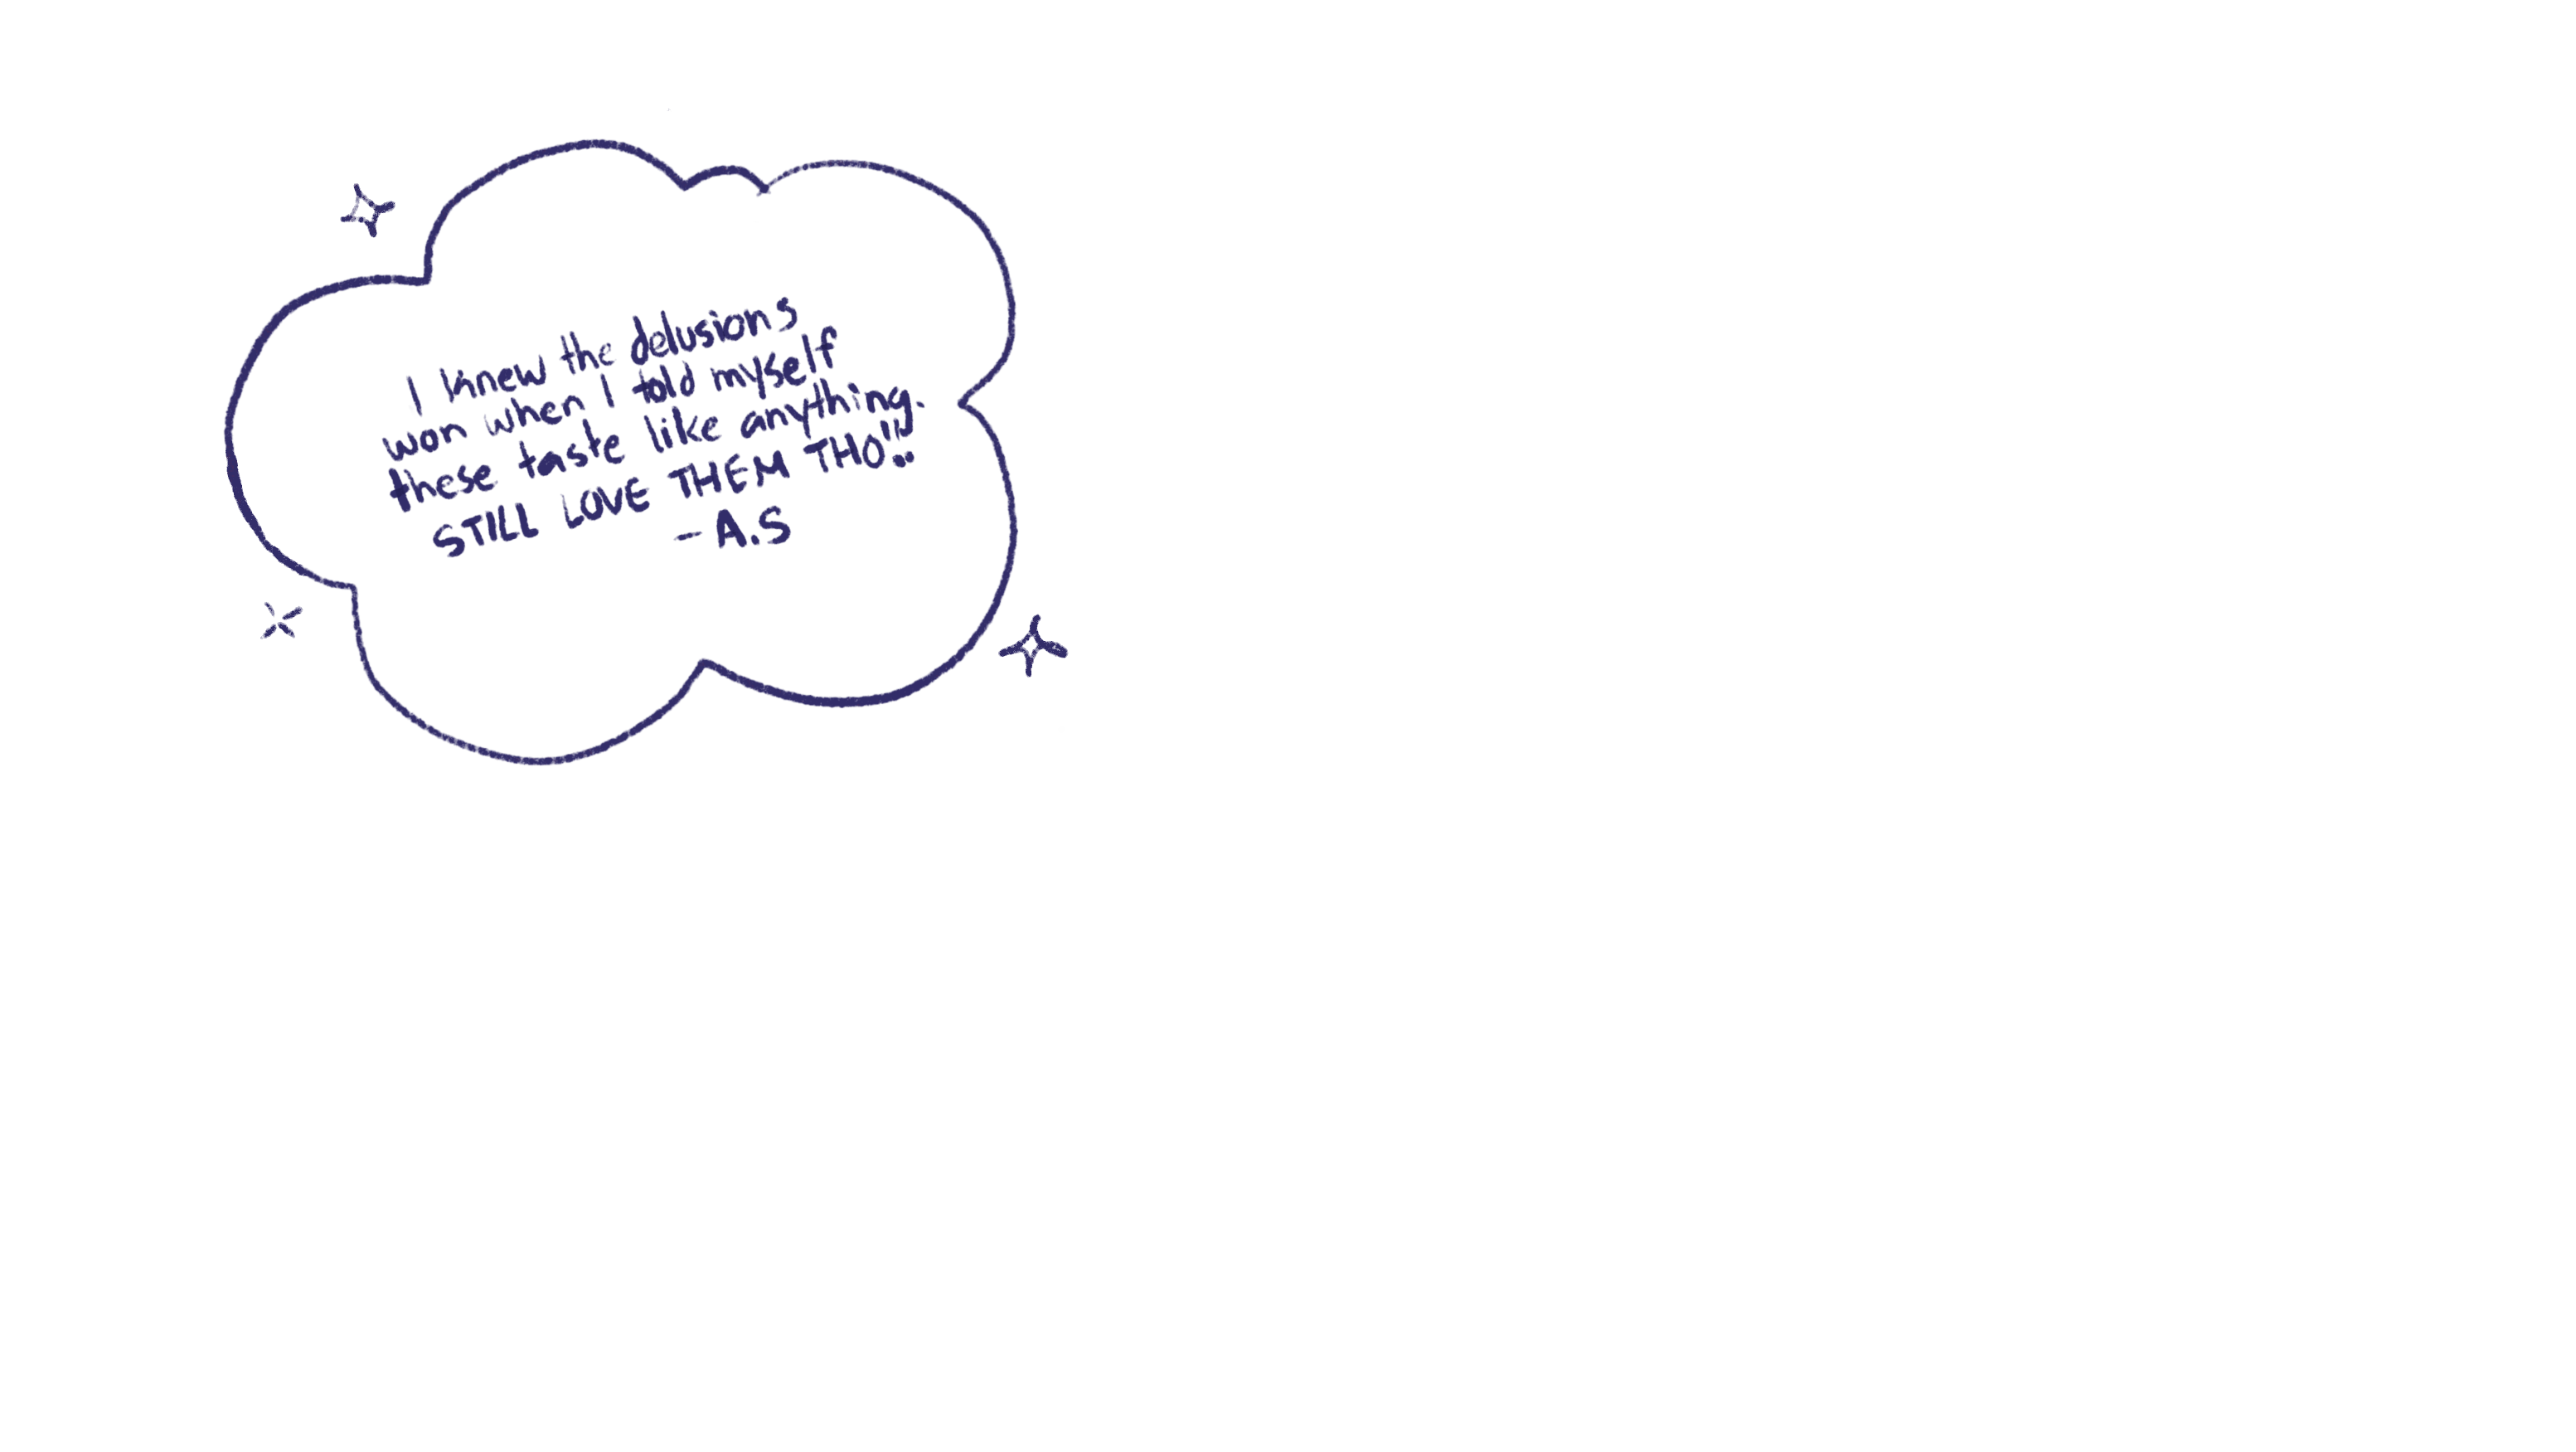 I knew the delusions
won when I told myself
these taste like anything.
STILL LOVE THEM THO!!
-A.S